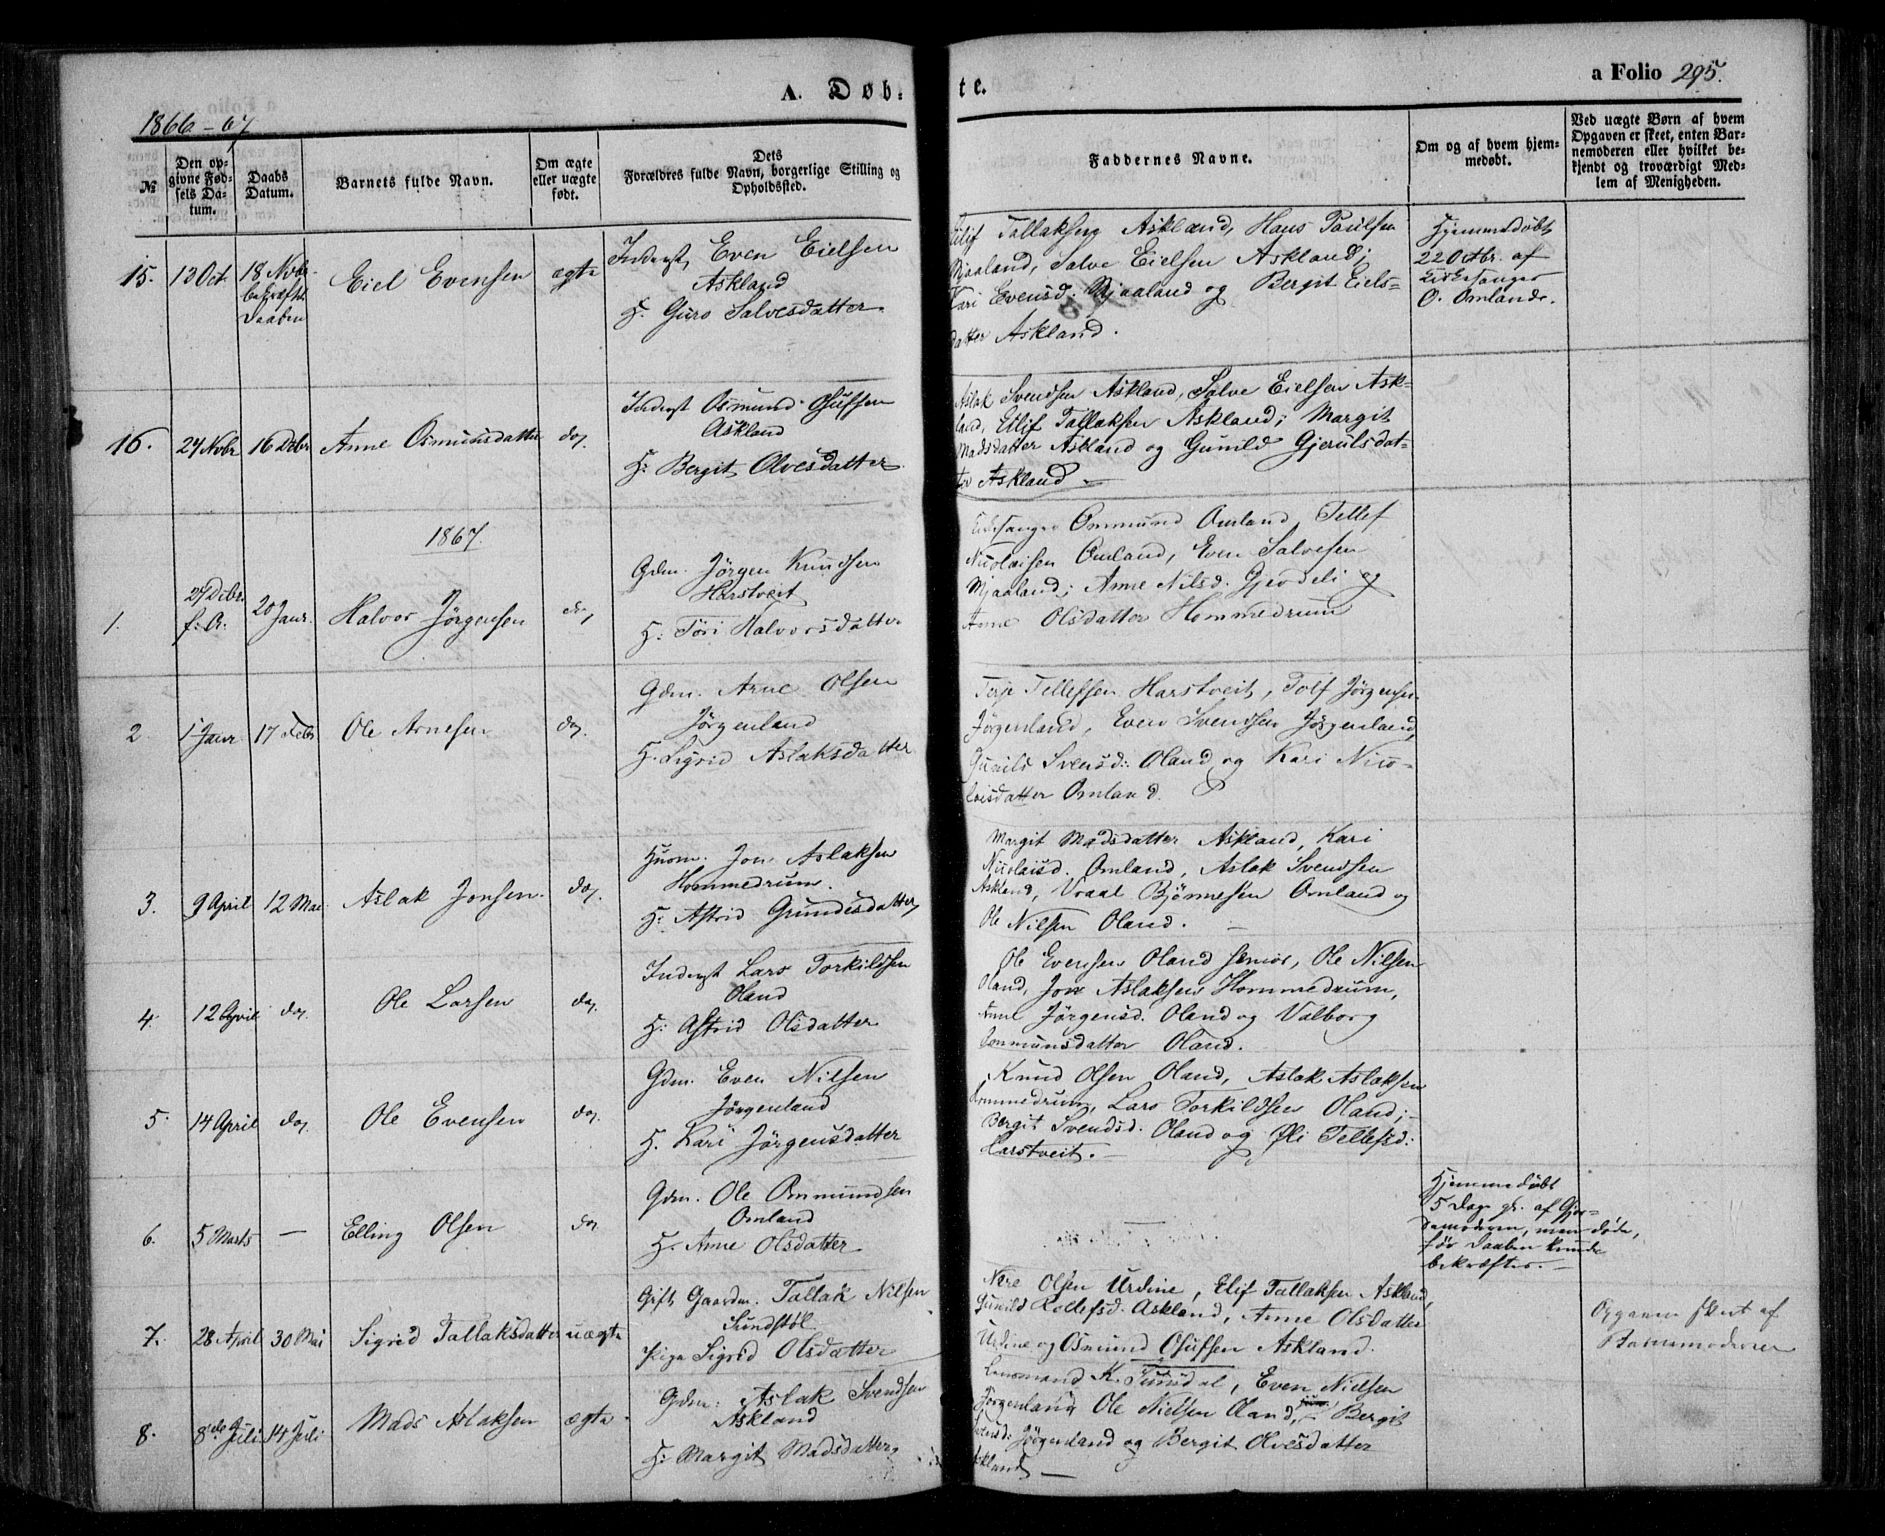 A. Døb-
te.
a Folio 295.
1866-67
№
Den op-
givne Fød-
sels Da-
tum.
Daabs
Datum.
Barnets fulde Navn.
Om ægte
eller uægte
født.
Dets
Forældres fulde Navn, borgerlige Stilling og
Opholdssted.
Faddernes Navne.
Om og af hvem hjem-
medøbt.
Ved uægte Børn af hvem
Opgaven er skeet, enten Bar-
nemoderen eller hvilket be-
kjendt og troværdigt Med-
lem af Menigheden.
15.
13 Oct.
18 Novbr.
bekræftet
Daaben
Eiel Evensen
ægte
Inderst, Even Eielsen
Askland
H. Guro Salvesdatter.
Eilif Tallaksen Askland, Hans Poulsen
Mjaaland, Salve Eielsen Askland;
Kari Evensd. Mjaaland og Bergit Eiels-
datter Askland.
Hjemmedøbt
22 Octbr. af
Kirkesanger
O. Omland.
16.
24 Novbr
16 Debr
Anne Osmundsdatter
do.
Inderst Osmund Osufsen
Askland
H: Bergit Olvesdatter.
Aslak Svendsen Askland, Salve Eielsen Ask-
land, Eilif Tallaksen Askland; Margit
Madsdatter Askland og Gunild Gjerulsdat-
ter Askland.
1867.
1.
27 Debr.
f. A.
20 Janr.
Halvor Jörgensen
do,
Gdm. Jörgen Knudsen
Harstveit
H: Tori Halvorsdatter
Kirkesanger Ommund Omland, Tellef
Nicolaisen Omland, Even Salvesen
Mjaaland; Anne Nilsd. Gjevdeli og
Anne Olsdatter Hommedrum
2
1 Janr
17 Febr
Ole Arnesen
do.
Gdm. Arne Olsen
Jörgenland
H. Sigrid Aslaksdatter
Terje Tellefsen Harstveit, Tolf Jörgensen
Jörgenland, Even Svendsen Jörgenland,
Gunild Svensd: Oland og Kari Nico-
laisdatter Omland.
3.
9 April
12 Mai
Aslak Jonsen.
do.
Huusm. Jon Aslaksen
Hommedrum.
H: Astrid Gundesdatter,
Margit Madsdatter Askland, Kari
Nicolaisd. Omland, Aslak Svendsen
Askland, Vraal Bjönnesen Omland og
Ole Nilsen Oland.
4.
12 April
do.
Ole Larsen
do.
Inderst Lars Torkildsen
Oland
H: Astrid Olsdatter
Ole Evensen Oland senior, Ole Nilsen
Oland, Jon Aslaksen Hommedrum,
Anne Jörgensd. Oland og Valborg
Ommundsdatter Oland.
5.
14 April
do.
Ole Evensen
do.
Gdm. Even Nilsen
Jörgenland
H. Kari Jörgensdatter
Knud Olsen Oland, Aslak Aslaksen
Hommedrum, Lars Torkildsen Oland;
Bergit Svendsd. Oland og Tellefsd:
Harstveit.
6.
5 Marts
—
Elling Olsen
do.
Gdm. Ole Ommundsen
Omland
H. Anne Olsdatter
Hjemmedøbt
5 Dage gl. af Gjor-
demoderen, men døde,
før Daaben kunde
bekræftes.
7.
28 April
30 Mai
Sigrid Tallaksdatter
uægte
Gift Gaardm. Tallak Nilsen
Sundstöl
Pige Sigrid Olsdatter
Olsen Urdine, Elif Tallaksen Askland,
Gunild Askland, Anne Olsdatter
Urdine og Osmund Osufsen Askland.
Opgaven skeet af
Barnemoderen
8.
8de Juli
14 Juli
Mads Aslaksen
ægte
Gdm: Aslak Svendsen
Askland
H: Margit Madsdatter
Lensmand K. Tunsdal, Even Nielsen
Jörgenland, Ole Nielsen Oland, Bergit
Svensd: Jörgenland og Bergit Olvesdatter
Askland